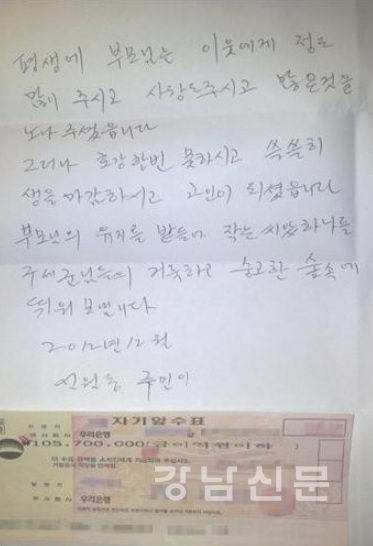 평생에 부모님는 이웃에게 정도
많이 주시고 사랑도주시고 많은것을
노나 주셨읍니다
그러나 호강한번 못하시고 쓸쓸히
생을마감하시고 고인이 되셨읍니다
부모님의 유지를 받들어 작는 씨앗하나를
구세군님들의 거룩하고 숭고한 숲속에
띄워 보냅니다
2012년 12월
신월동 주민이
자기앞수표
우리은행
₩105,700,000
우리은행
강남신문